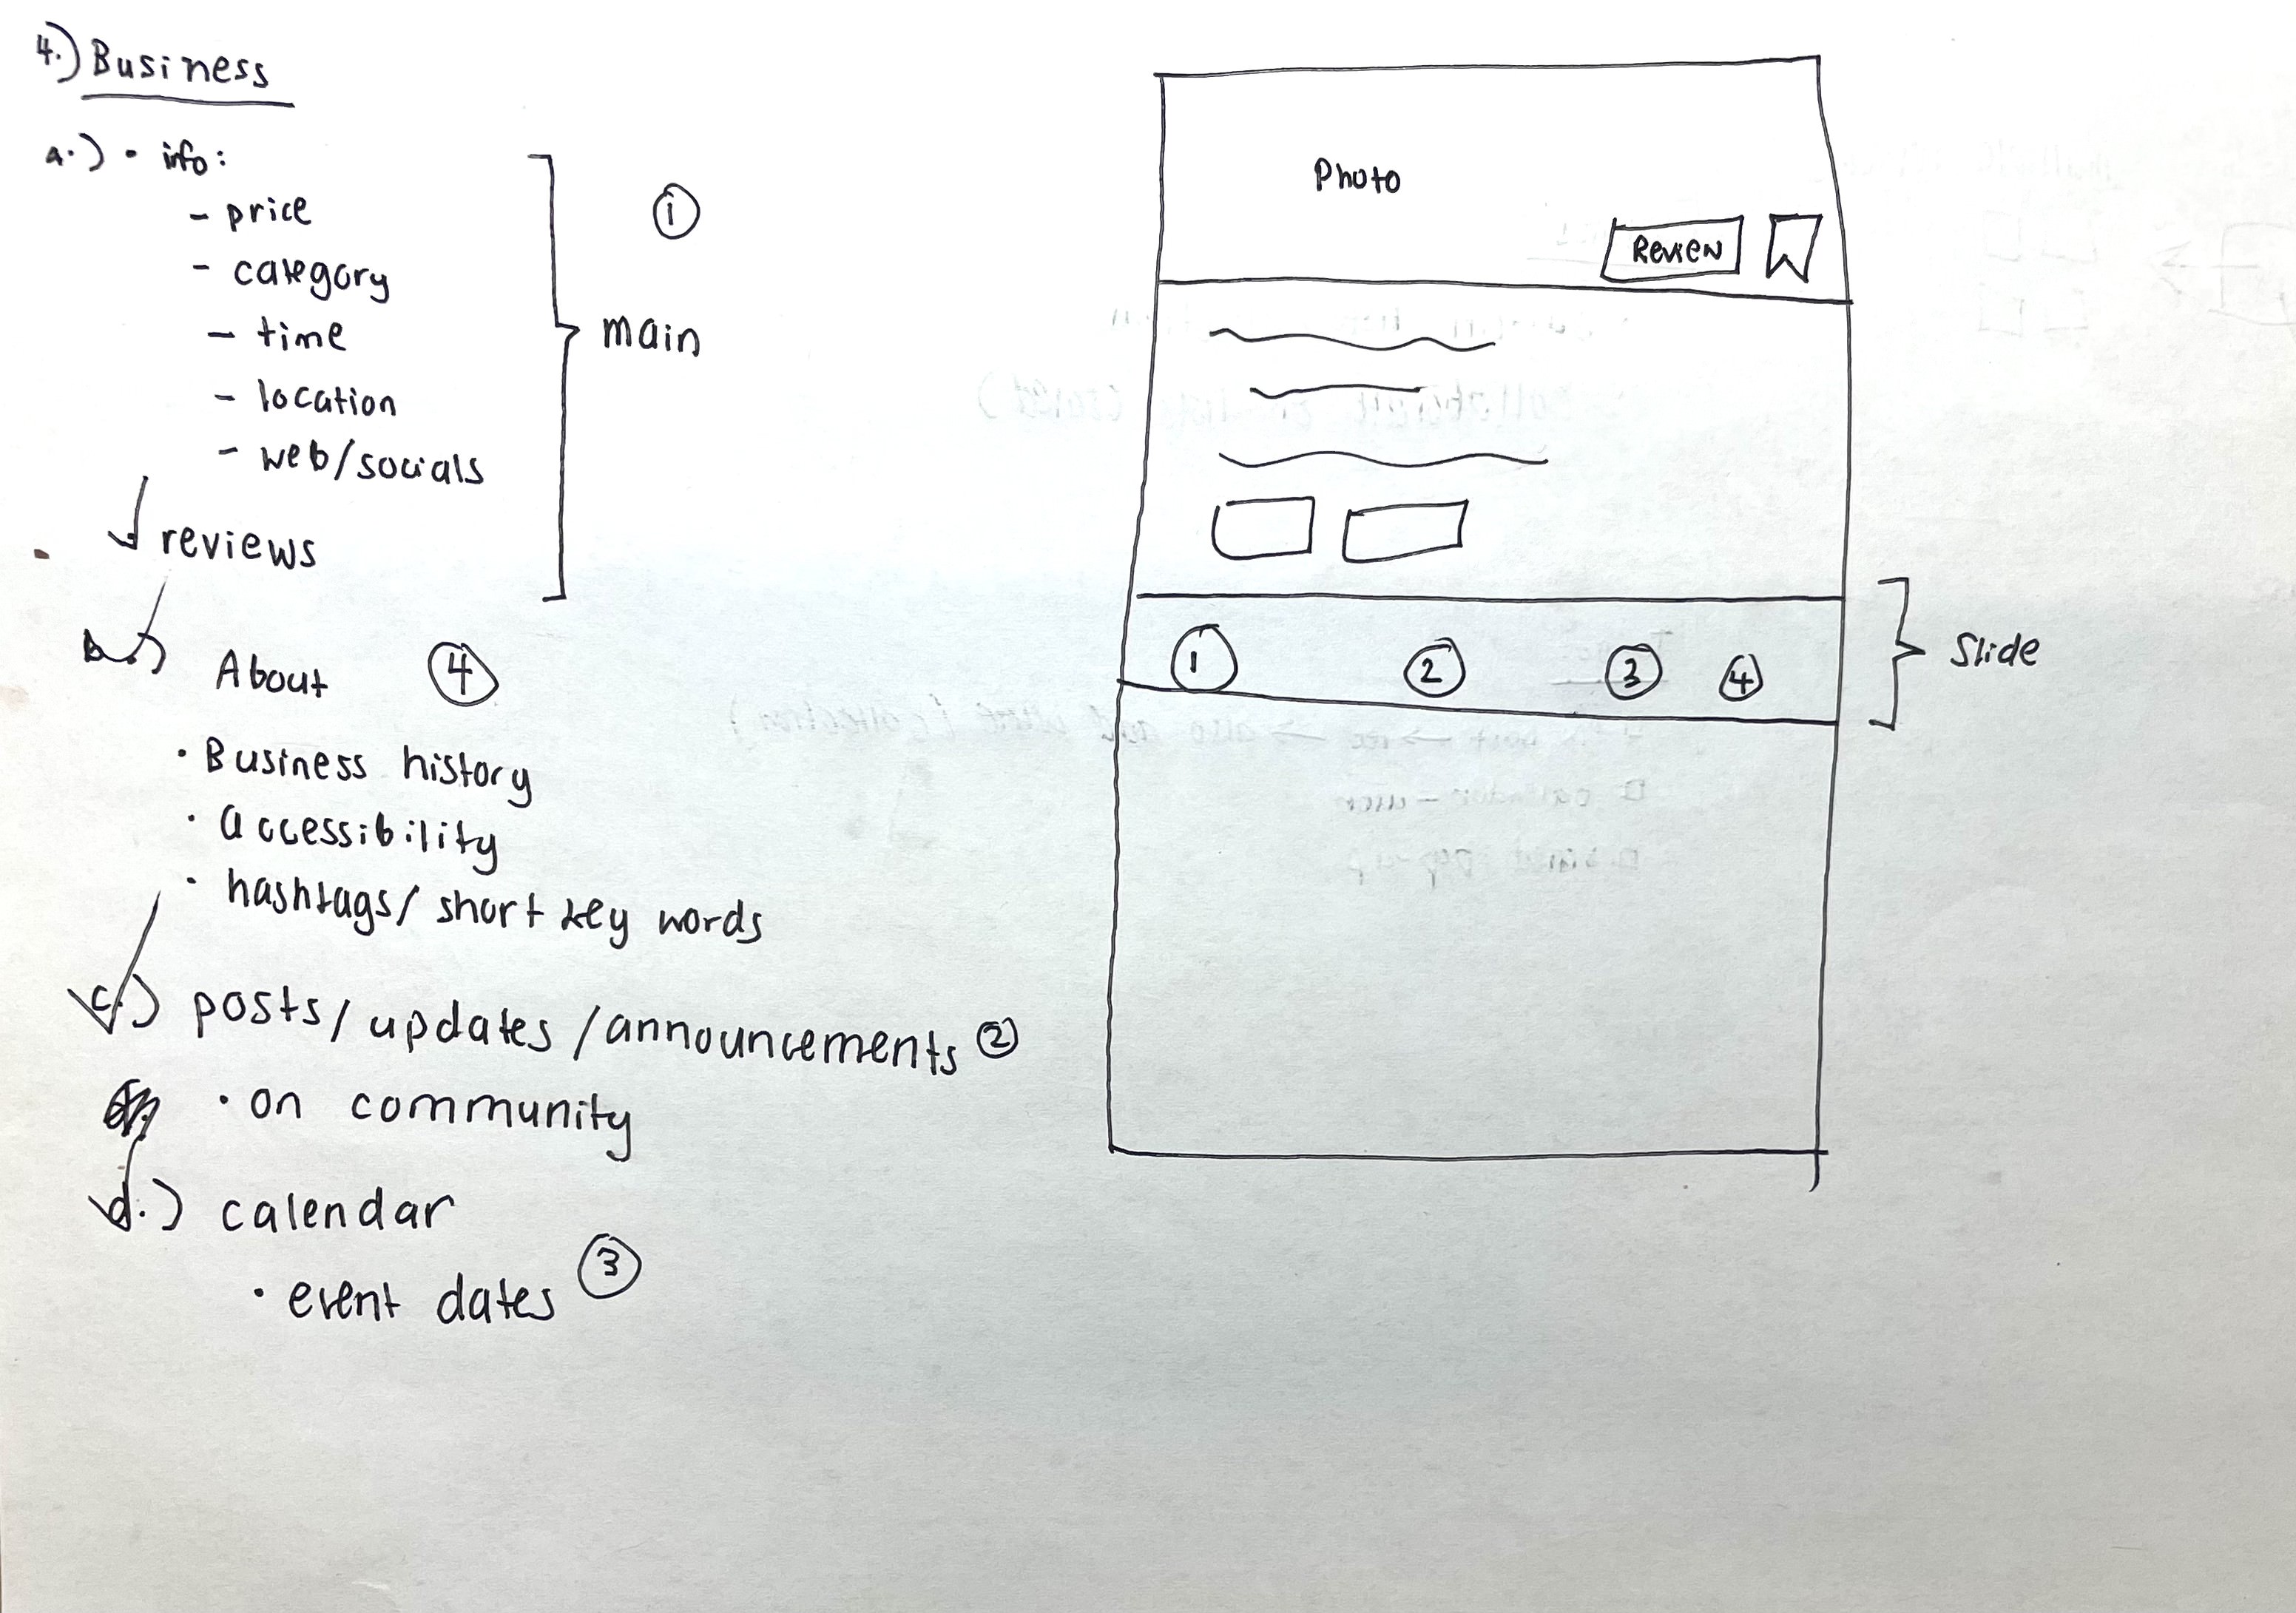 4.) Business
a.) • info:
- price
- category
- time
- location
- web/socials
reviews
main
①
b.) About ④
• Business history
• accessibility
• hashtags/ short key words
c.) posts/ updates /announcements ②
• on community
d.) calendar
• event dates ③
Photo
Review
① ② ③ ④
Slide